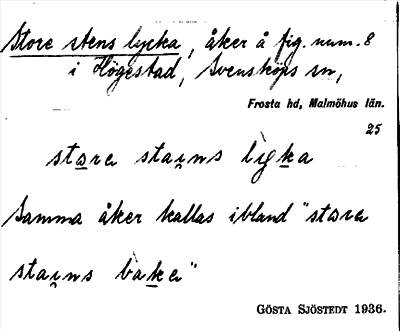 Store stens lycka, åker å fig. num. 8
i Högestad, Svensköps sn,
Frosta hd, Malmöhus län.
25
stora stai̯ns lygka
Samma åker kallas ibland "stora
stai̯ns baka"
GÖSTA SJÖSTEDT 1936.